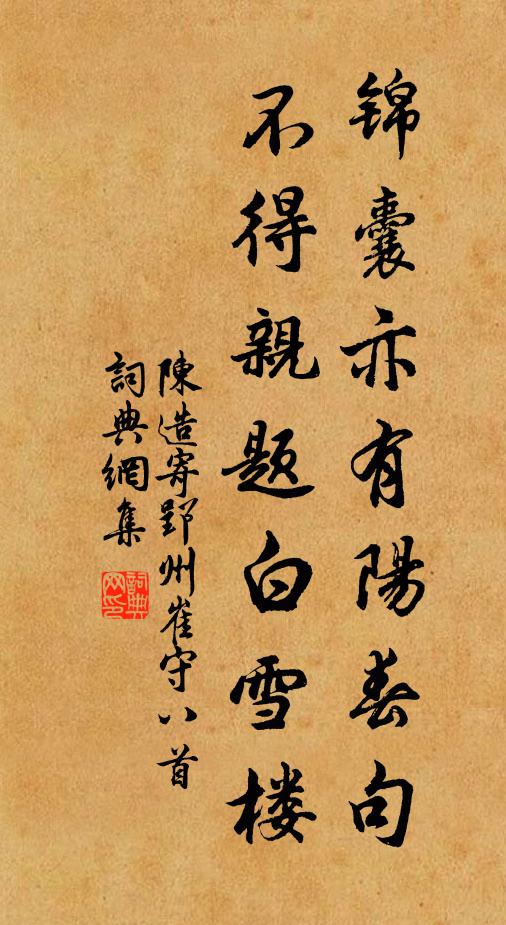 锦囊亦有陽春句
不得親题白雪楼
陳造寄郢州崔守八首
詞典網集
詞典网印